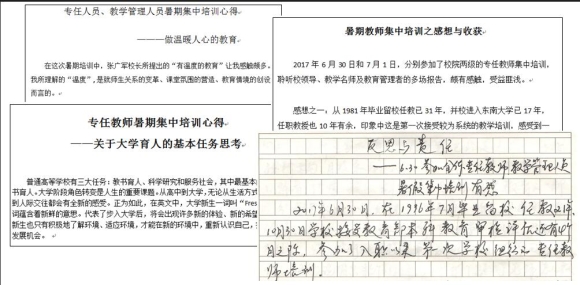 专任人员、教学管理人员暑期集中培训心得
———做温暖人心的教育
在这次暑期培训中，张广军校长所提出的“有温度的教育”让我感触颇多。
我所理解的“温度”，是就师生关系的变革、课堂氛围的营造、教育情境的创设
而言的。
专任教师暑期集中培训心得
——关于大学育人的基本任务思考
普通高等学校有三大任务：教书育人、科学研究和服务社会，其中最基本
书育人。大学阶段角色转变是人生的重要课题，从高中到大学，无论从生活方式
到人际交往都会有全新的感受。正为如此，在英文中，大学新生一词叫“Fres
词蕴含着新鲜的意思。代表了步入大学后，将会出现许多新的体验、新的希望
新生也只有积极地了解环境、适应环境，才能在新的环境中，重新认识自己，
发展机会。
暑期教师集中培训之感想与收获
2017 年 6 月 30 日和 7 月 1 日，分别参加了校院两级的专任教师集中培训，
聆听校领导、教学名师及教育管理者的多场报告，颇有感触，受益匪浅。
感想之一，从 1981 年毕业留校任教已 31 年，并校进入东南大学已 17 年，
任职教授也 10 年有余，印象中这是第一次接受较为系统的教学培训，感受到一
反思与责任
——6.30参加全体专任教师教学管理人员
暑假集中培训有感
2017年6月30日，在1996年7月毕业留校任教21年，
10月30日学校接受教育部本科教育审核评估还有4个
月之际，参加了入职以来第一次学校组织的专任教
师培训。